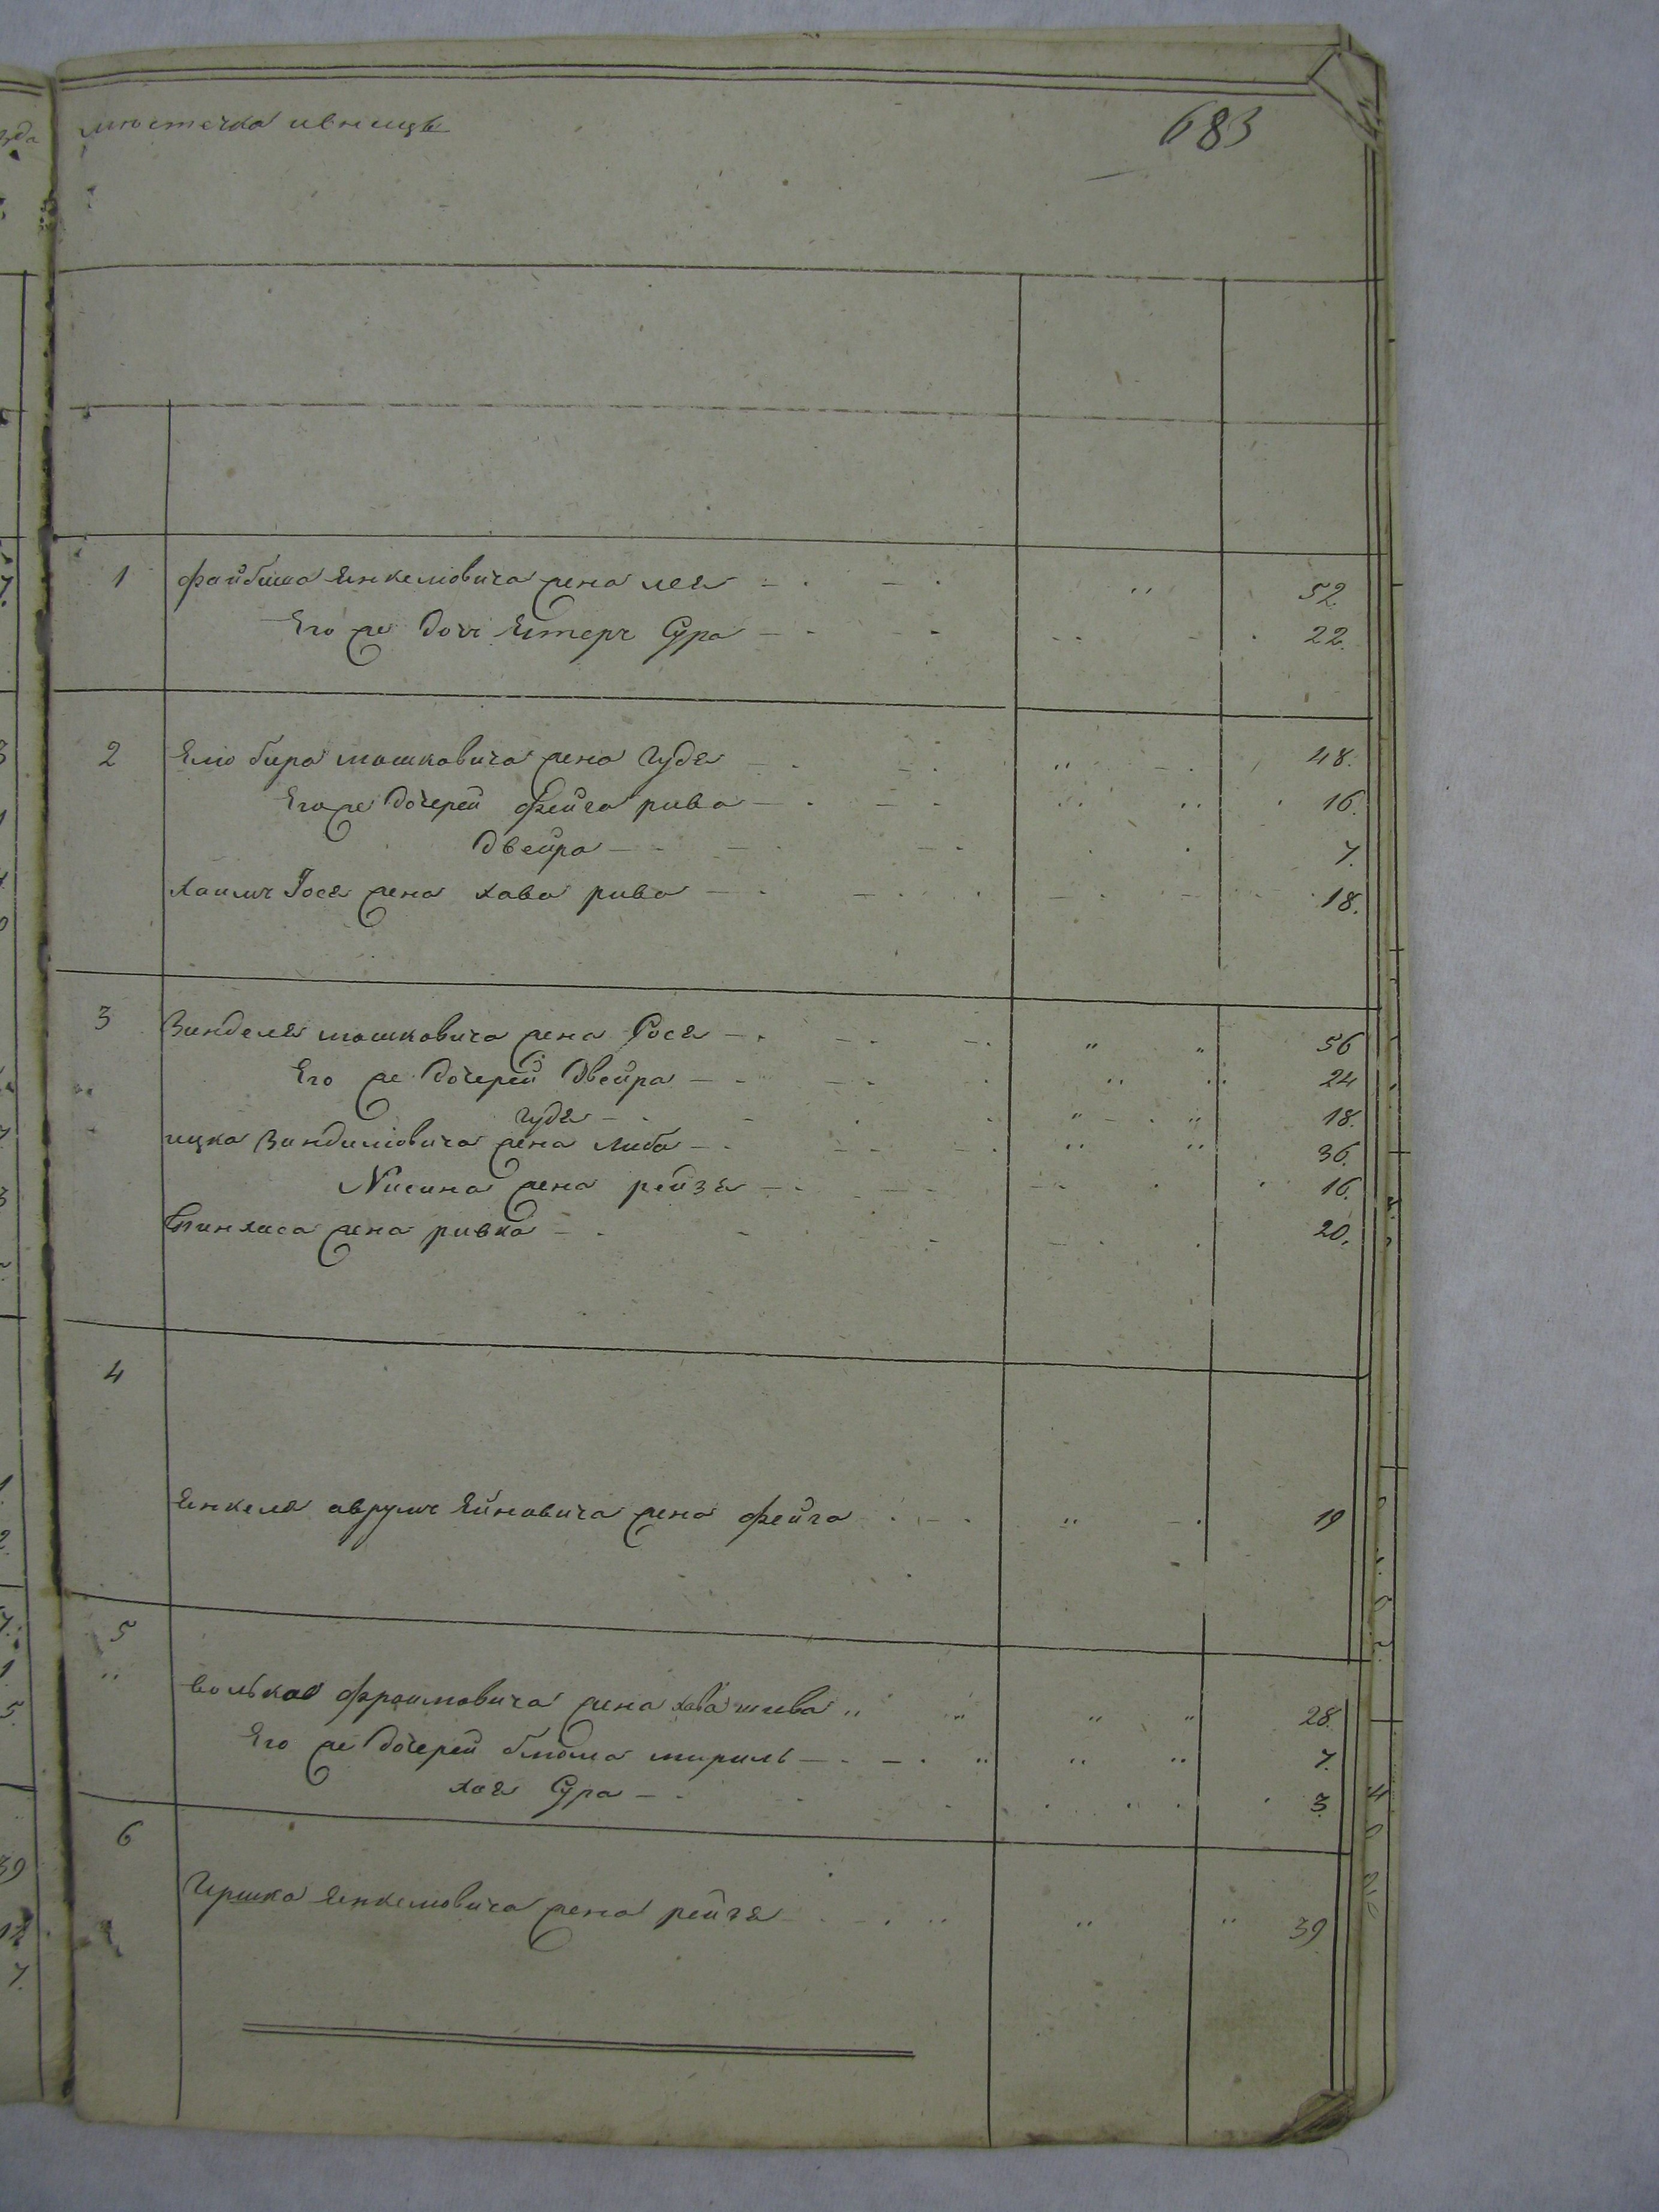 местечка ивницы
683
1 файбиша Янкелiовича жена лея 52.
Его же дочь Естерь Сура 22.
2 Елiо бира мошковича жена гудя 48.
Его же дочерей фейга рива 16.
двейра 7.
хаимъ Iося жена хава рива 18.
3 Зинделя мошковича жена Рося 56
Его же дочерей двейра 24
гудя 18.
ицка Зинделiовича жена либа 36.
Нисина жена рейзя 16.
пинхаса жена ривка 20.
4
Янкеля аврумъ Яйновича жена фейга 19
5
волька фроимовича жена хава шива 28.
Его же дочерей блюма мириль 7.
хая Сура 3
6
Гершка Янкелiовича жена рейзя 39